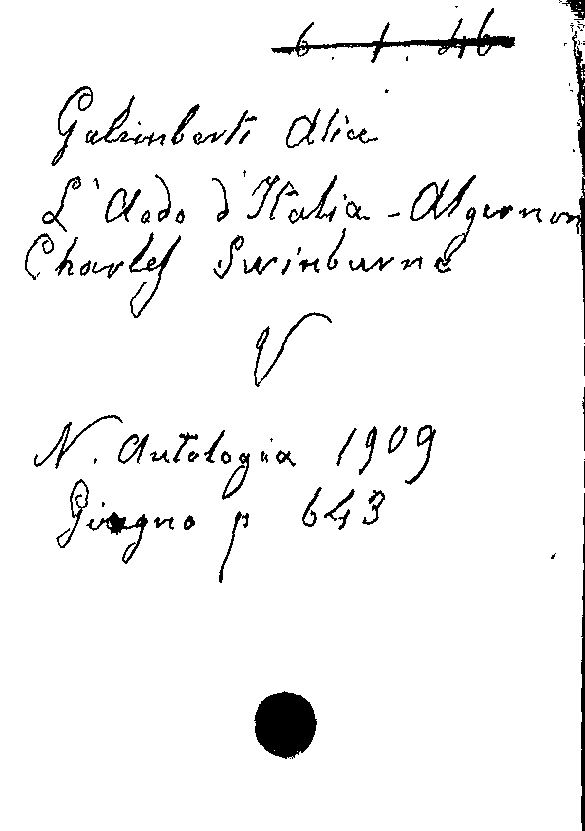 6. 1. 46
Galimberti Alice
L'Aedo d'Italia - Algernon
Charles Swinburne
V
N. Antologia 1909
Giugno p 643